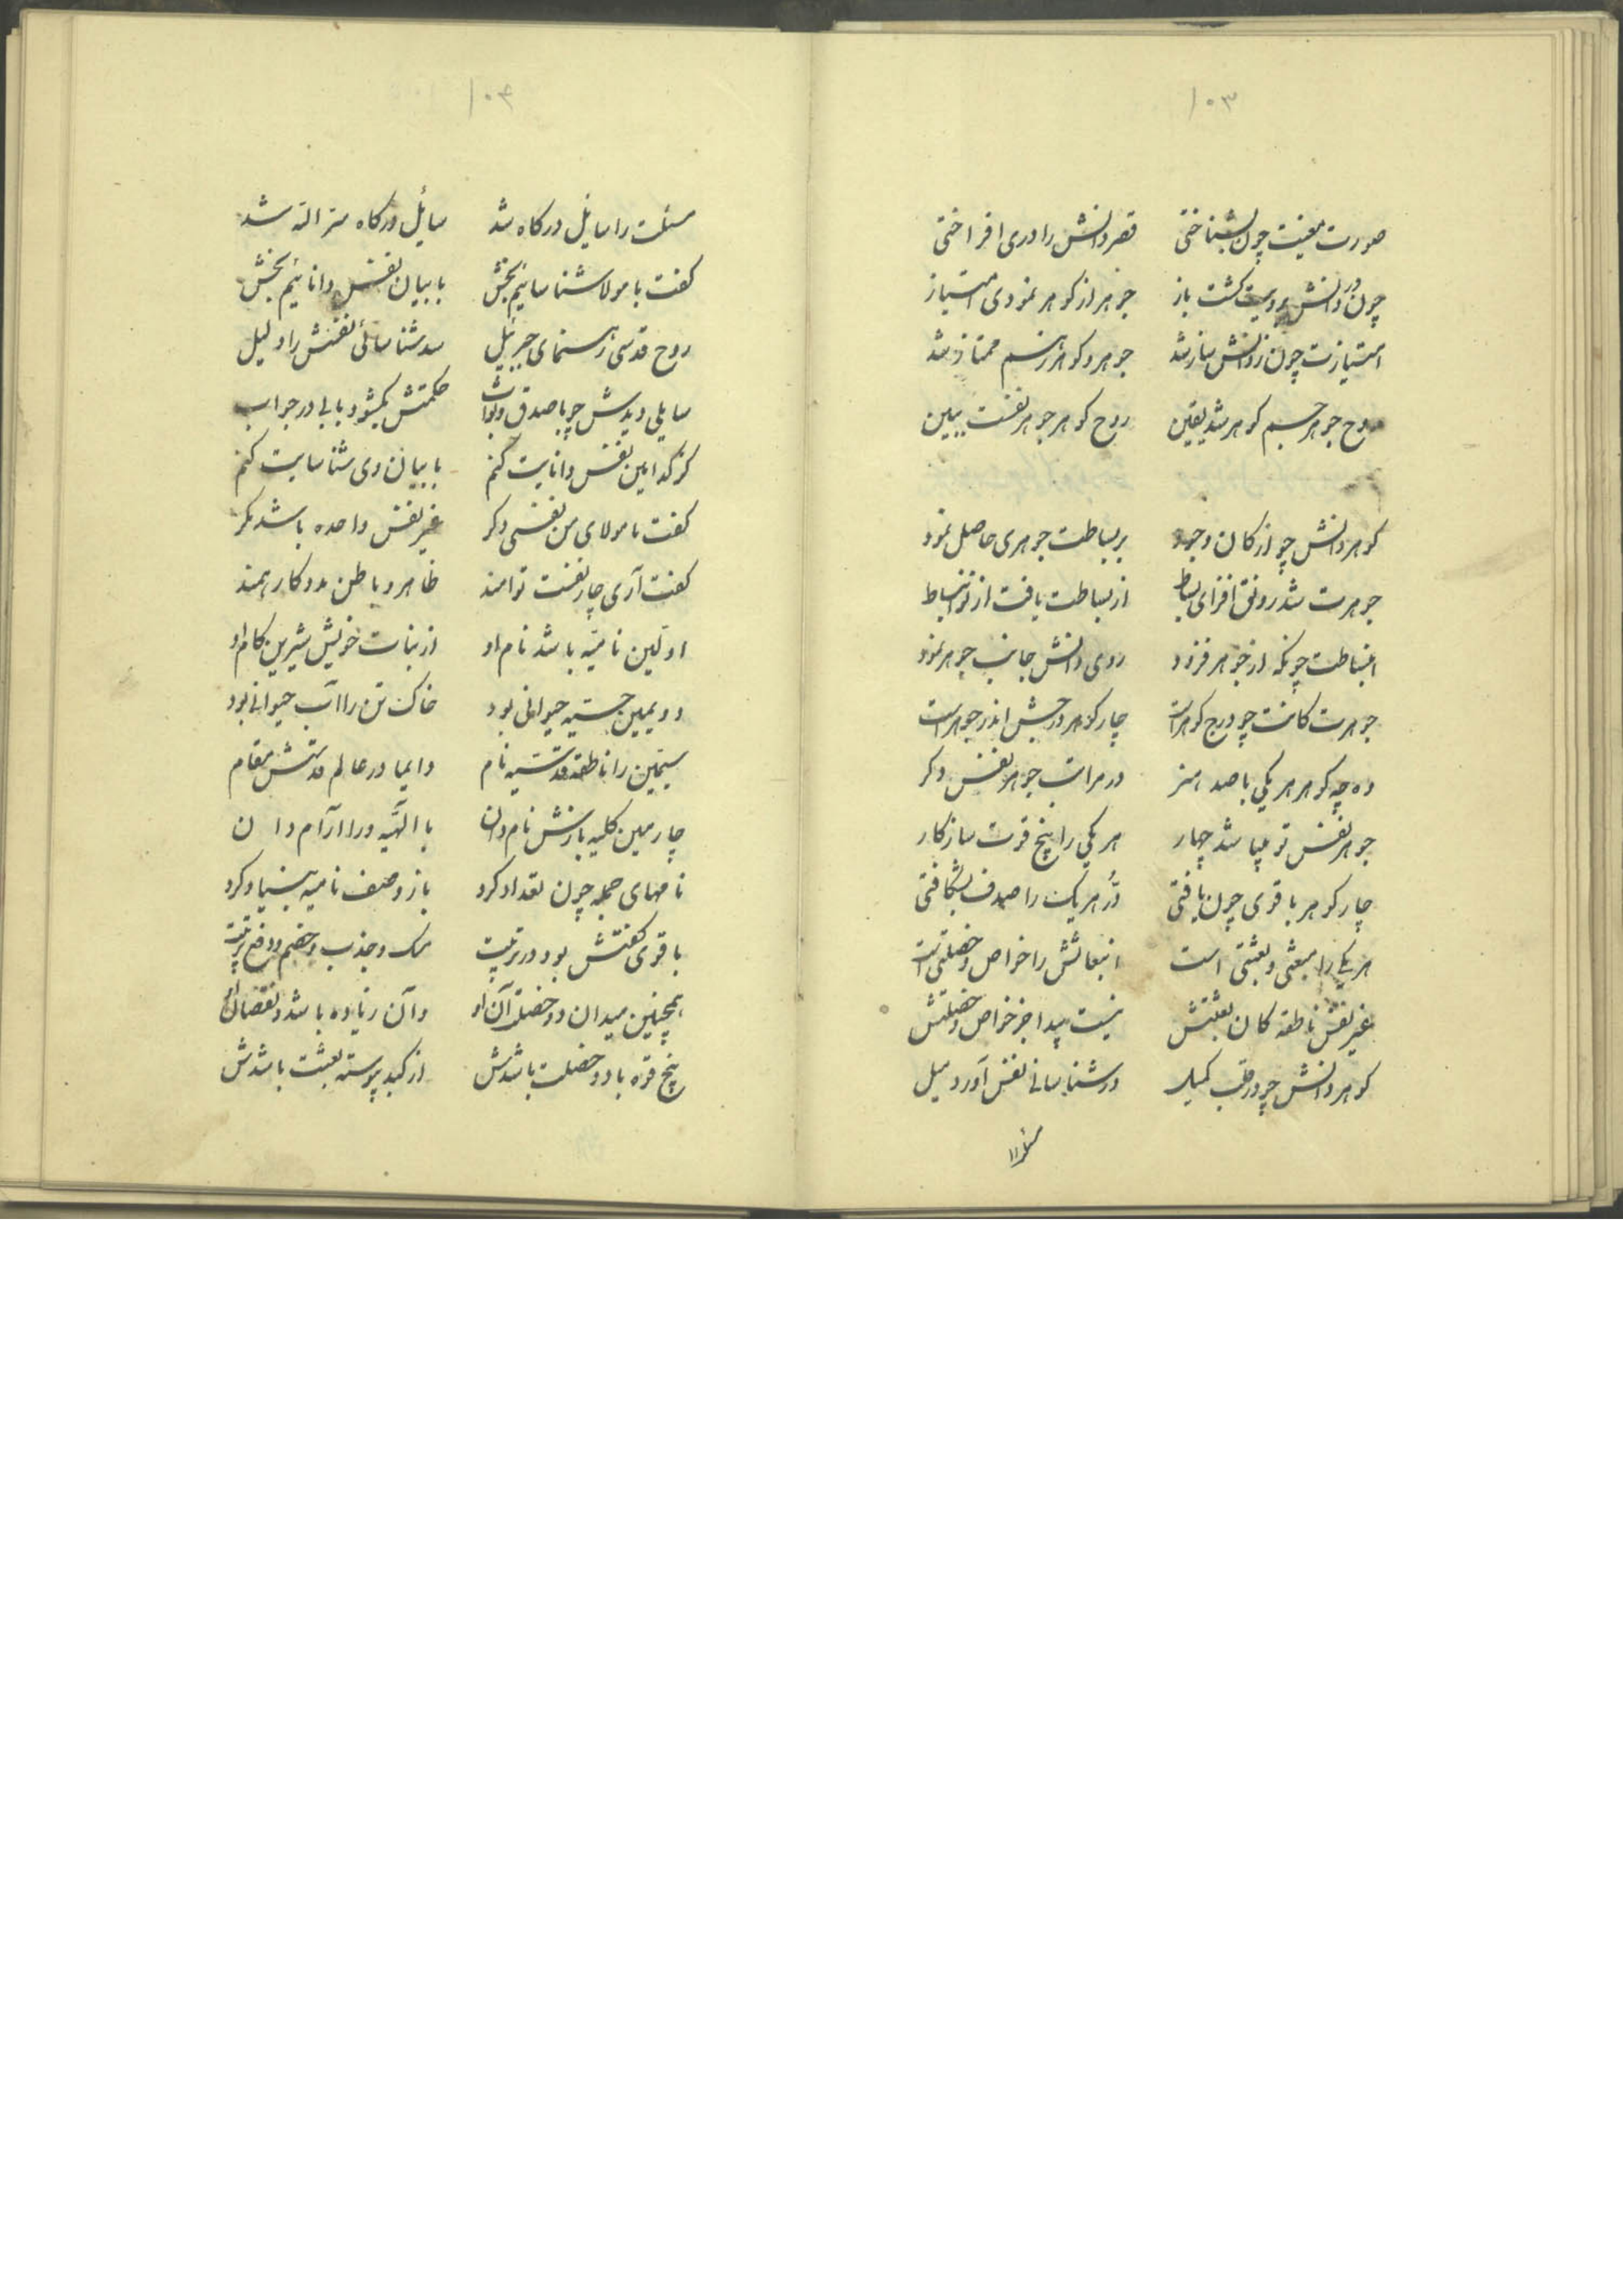 ۱۰۳
صورت معنیت چون بشناختی قصر دانش را دری افراختی
چون در دانش برویت کشت باز جوهر از کوهر نمودی امتیاز
امتیازت چون ز دانش ساز شد جوهر و کوهر ز هم ممتاز شد
روح جوهر جسم کوهر شد یقین روح کوهر جوهر نفست ببین
کوهر دانش چو از کان وجود بر بساطت جوهری حاصل نمود
جوهرت شد رونق افزای بساط از بساطت یافت از نو انبساط
انبساطت چونکه از جوهر فزود روی دانش جانب جوهر نمود
جوهرت کانست چو درج کوهراست چار کوهر در جبش اندر جوهراست
ده چه کوهر هر یکی با صد هنر در مراتب جوهر نفس دکر
جوهر نفس تو پیا شد چهار هر یکی را پنج قوت سازکار
چار کوهر با قوی چون یافتی دُر هر یک را صدف بشکافتی
هر یکی را مبعثی و بعثتی است انبعاثش را خواص و خصلتی است
غیر نفس ناطقه کان بعثتش نیست پیدا جز خواص و خصلتش
کوهر دانش چو در قلب کمیل در شناسائی نفس آورد میل
۱۰۴
مسئلت را سایل درکاه شد سایل درکاه سرّ اله شد
کفت با مولا شناسائیم بخش با بیان نفس دانائیم بخش
روح قدسی رهنمای جبرئیل شد شناسائی نفسش را دلیل
سایلی دیدش چو با صدق و ثواب حکمتش بکشود بابی در جواب
کز کدامین نفس دانایت کنم با بیان وی شناسایت کنم
کفت با مولای من نفسی دکر غیر نفس واحده باشد مکر
کفت آری چار نفست توامند ظاهر و باطن مددکار همند
اولین نامیّه باشد نام او از نبات خویش شیرین کام او
دویمین حسّیه حیوانی بود خاک تن را آب حیوانی بود
سیمین را ناطقه قدسیّه نام دایما در عالم قدسش مقام
چارمین کلیه بازش نام دان با الهّیه ورا آرام دان
نامهای جمله چون تعداد کرد باز وصف نامیه بنیاد کرد
با قوی کفتش بود در تربیت مسک و جذب و هضم و دفع و تربیت
همچنین میدان دو خصلت آن او وآن زیاده باشد و نقصان او
پنج قوه با دو خصلت باشدش از کبد پیوسته بعثت باشدش